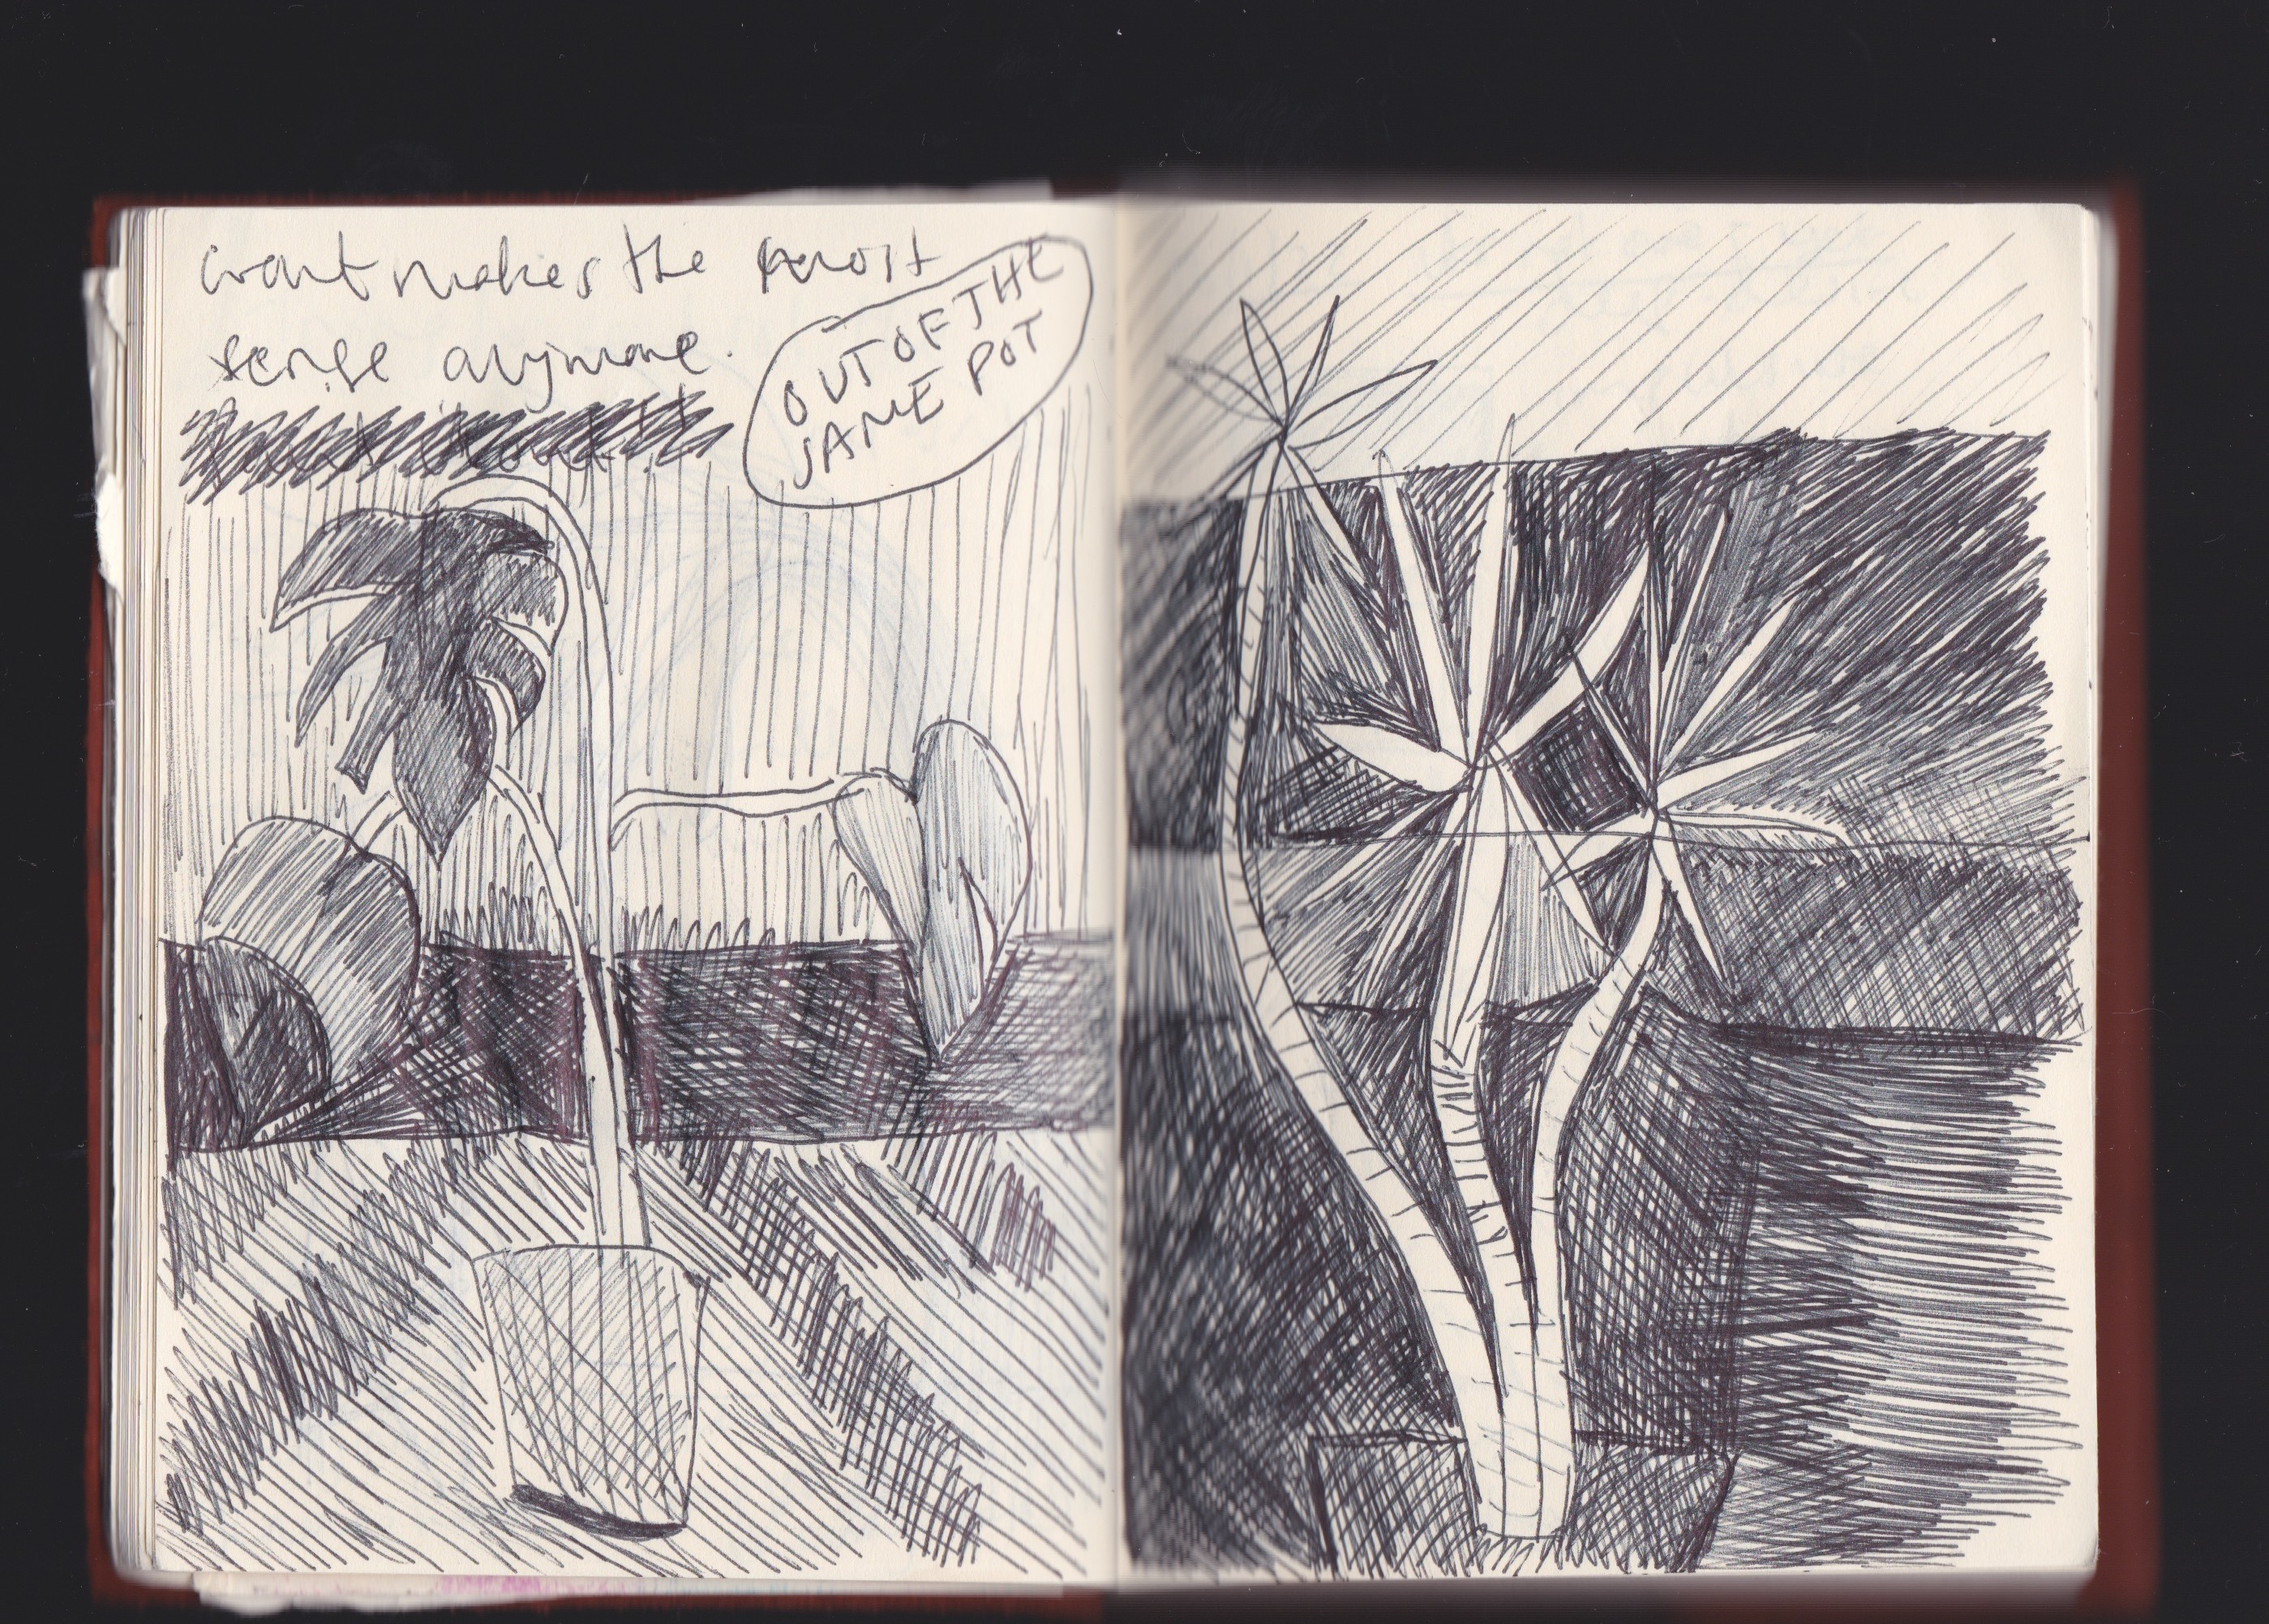 want makes the most
sense anymore.
OUT OF THE
SAME POT